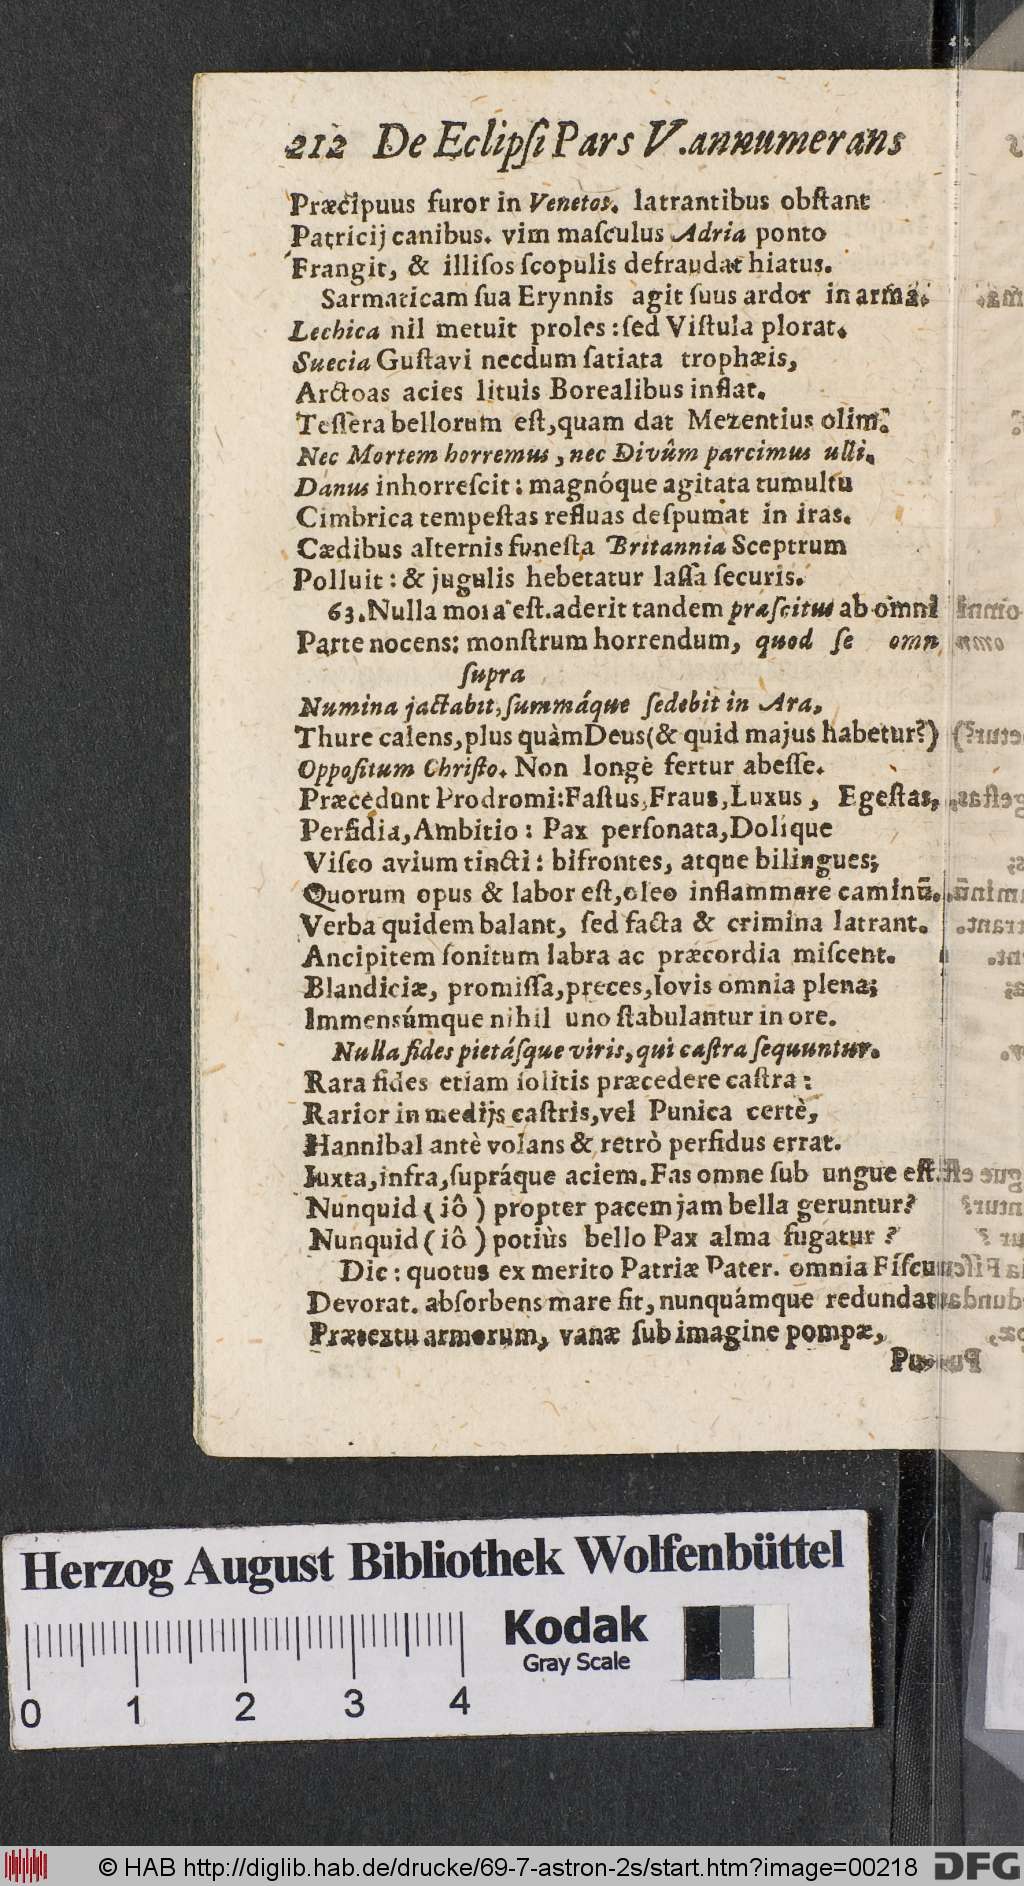 212 De Eclipſi Pars V. annumerans
Præcipuus furor in Venetos. latrantibus obſtant
Patricij canibus. vim maſculus Adria ponto
Frangit, & illiſos ſcopulis defraudat hiatus.
Sarmaticam ſua Erynnis agit ſuus ardor in arma.
Lechica nil metuit proles: ſed Viſtula plorat.
Suecia Guſtavi necdum ſatiata trophæis,
Arctoas acies lituis Borealibus inflat.
Teſſera bellorum eſt, quam dat Mezentius olim:
Nec Mortem horremus, nec Divûm parcimus ulli.
Danus inhorreſcit: magnóque agitata tumultu
Cimbrica tempeſtas refluas deſpumat in iras.
Cædibus alternis funeſta Britannia Sceptrum
Polluit: & jugulis hebetatur laſſa ſecuris.
63. Nulla mora eſt. aderit tandem præſcitus ab omni
Parte nocens: monſtrum horrendum, quod ſe omn
ſupra
Numina jactabit, ſummáque ſedebit in Ara,
Thure calens, plus quàm Deus (& quid majus habetur?)
Oppoſitum Chriſto. Non longè fertur abeſſe.
Præcedunt Prodromi: Faſtus, Fraus, Luxus, Egeſtas,
Perfidia, Ambitio: Pax perſonata, Dolíque
Viſco avium tincti: bifrontes, atque bilingues;
Quorum opus & labor eſt, oleo inflammare caminū.
Verba quidem balant, ſed facta & crimina latrant.
Ancipitem ſonitum labra ac præcordia miſcent.
Blandiciæ, promiſſa, preces, Iovis omnia plena;
Immensúmque nihil uno ſtabulantur in ore.
Nulla fides pietáſque viris, qui caſtra ſequuntur.
Rara fides etiam ſolitis præcedere caſtra:
Rarior in medijs caſtris, vel Punica certè,
Hannibal antè volans & retrò perfidus errat.
Iuxta, infra, ſupráque aciem. Fas omne ſub ungue eſt.
Nunquid (iô) propter pacem jam bella geruntur?
Nunquid (iô) potiùs bello Pax alma fugatur?
Dic: quotus ex merito Patriæ Pater. omnia Fiſcu
Devorat. abſorbens mare fit, nunquámque redundat
Prætextu armorum, vanæ ſub imagine pompæ,
Pu
Herzog August Bibliothek Wolfenbüttel
Kodak
Gray Scale
0 1 2 3 4
© HAB http://diglib.hab.de/drucke/69-7-astron-2s/start.htm?image=00218 DFG